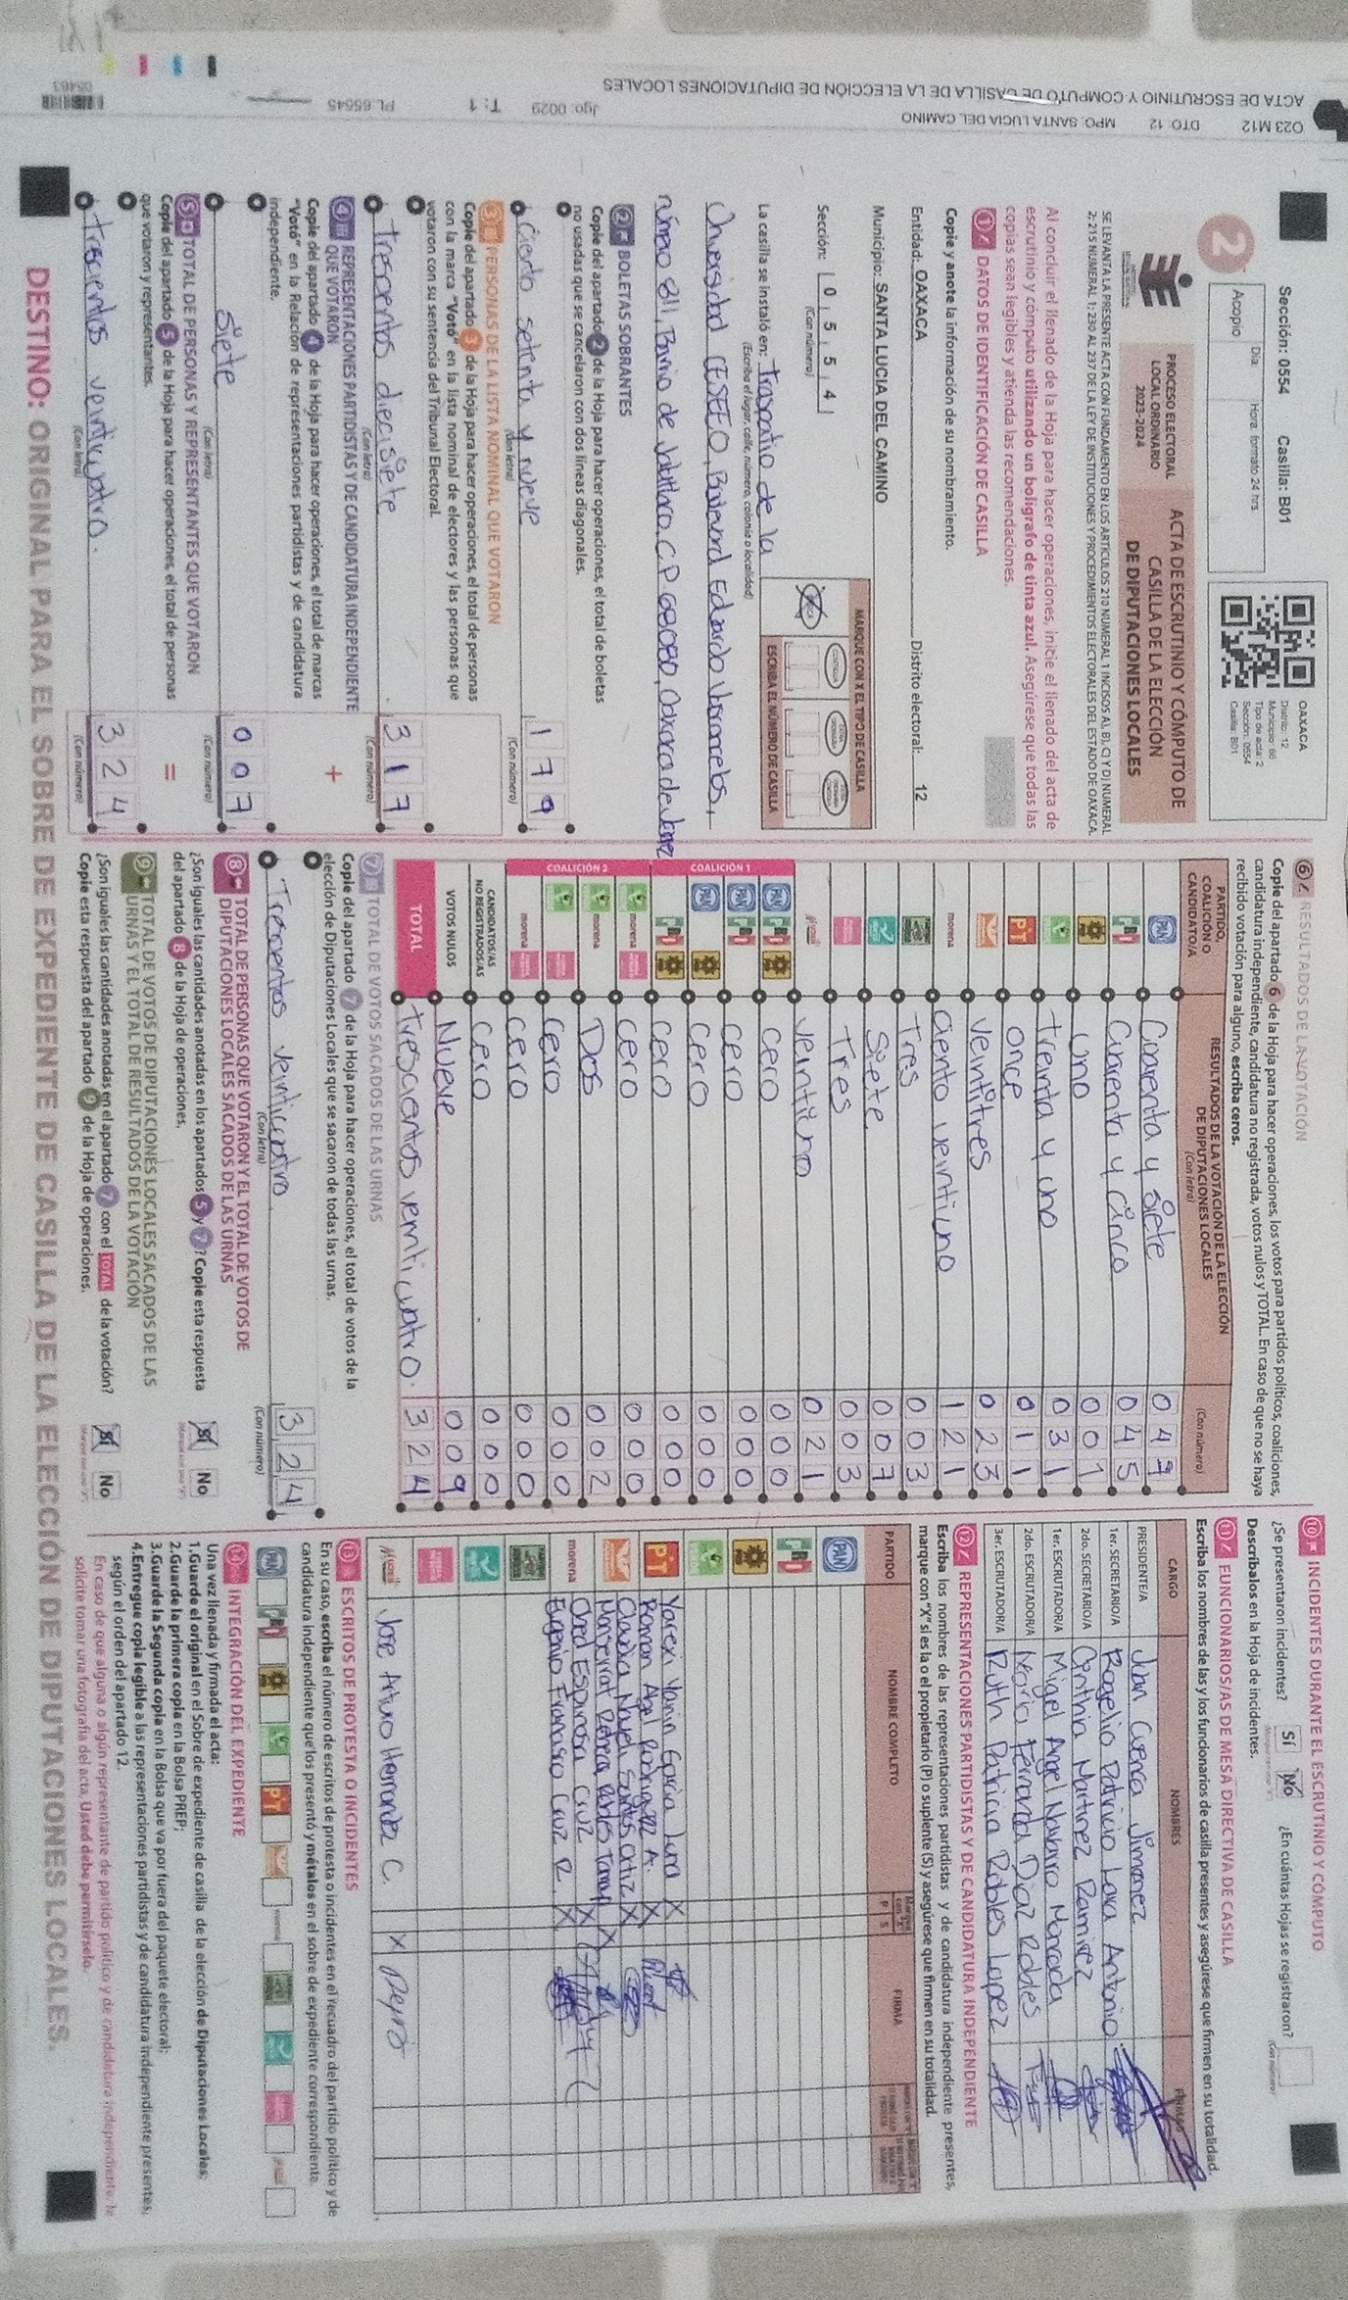 O23 M12 DTO. 12 MPO. SANTA LUCIA DEL CAMINO
ACTA DE ESCRUTINIO Y COMPUTO DE CASILLA DE LA ELECCIÓN DE DIPUTACIONES LOCALES
Jgo: 0029 T: 1 PL.65545
05463
Sección: 0554 Casilla: B01
2
Acopio
Día: Hora: formato 24 hrs
OAXACA
Distrito: 12
Tipo de acta: 2
Sección: 0554
Casilla: B01
PROCESO ELECTORAL
LOCAL ORDINARIO
2023-2024
ACTA DE ESCRUTINIO Y CÓMPUTO DE
CASILLA DE LA ELECCIÓN
DE DIPUTACIONES LOCALES
SE LEVANTA LA PRESENTE ACTA CON FUNDAMENTO EN LOS ARTÍCULOS 210 NUMERAL 1 INCISOS A), B), C) Y D) NUMERAL
2; 215 NUMERAL 1; 230 AL 237 DE LA LEY DE INSTITUCIONES Y PROCEDIMIENTOS ELECTORALES DEL ESTADO DE OAXACA.
Al concluir el llenado de la Hoja para hacer operaciones, inicie el llenado del acta de
escrutinio y cómputo utilizando un bolígrafo de tinta azul. Asegúrese que todas las
copias sean legibles y atienda las recomendaciones.
1 DATOS DE IDENTIFICACIÓN DE CASILLA
Copie y anote la información de su nombramiento.
Entidad: OAXACA Distrito electoral: 12
Municipio: SANTA LUCIA DEL CAMINO
Sección: 0 5 5 4
(Con número)
MARQUE CON X EL TIPO DE CASILLA
ESCRIBA EL NÚMERO DE CASILLA
La casilla se instaló en: Traspatio de la
(Escriba el lugar, calle, número, colonia o localidad)
Universidad CESEEO, Bulevard Eduardo Vasconcelos,
número 811, Barrio de Jalatlaco, C.P 68080, Oaxaca de Juárez
2 BOLETAS SOBRANTES
Copie del apartado 2 de la Hoja para hacer operaciones, el total de boletas
no usadas que se cancelaron con dos líneas diagonales.
Ciento setenta y nueve 1 7 9
(Con letra) (Con número)
3 PERSONAS DE LA LISTA NOMINAL QUE VOTARON
Copie del apartado 3 de la Hoja para hacer operaciones, el total de personas
con la marca "Votó" en la lista nominal de electores y las personas que
votaron con su sentencia del Tribunal Electoral.
Trescientos diecisiete 3 1 7
(Con letra) (Con número)
4 REPRESENTACIONES PARTIDISTAS Y DE CANDIDATURA INDEPENDIENTE
QUE VOTARON
Copie del apartado 4 de la Hoja para hacer operaciones, el total de marcas
"Votó" en la Relación de representaciones partidistas y de candidatura
independiente.
+
Siete 0 0 7
(Con letra) (Con número)
5 TOTAL DE PERSONAS Y REPRESENTANTES QUE VOTARON
Copie del apartado 5 de la Hoja para hacer operaciones, el total de personas
que votaron y representantes.
=
Trescientos veinticuatro. 3 2 4
(Con letra) (Con número)
6 RESULTADOS DE LA VOTACIÓN
Copie del apartado 6 de la Hoja para hacer operaciones, los votos para partidos políticos, coaliciones,
candidatura independiente, candidatura no registrada, votos nulos y TOTAL. En caso de que no se haya
recibido votación para alguno, escriba ceros.
PARTIDO, COALICIÓN O CANDIDATO/A
RESULTADOS DE LA VOTACIÓN DE LA ELECCIÓN DE DIPUTACIONES LOCALES
(Con letra) (Con número)
PAN Cuarenta y siete 0 4 7
PRI Cuarenta y cinco 0 4 5
Uno 0 0 1
Treinta y uno 0 3 1
PT Once 0 1 1
Veintitres 0 2 3
morena Ciento veintiuno 1 2 1
Tres 0 0 3
Siete. 0 0 7
Tres 0 0 3
Veintiuno 0 2 1
COALICIÓN 1
PAN PRI Cero 0 0 0
PAN PRI Cero 0 0 0
PAN Cero 0 0 0
PRI Cero 0 0 0
COALICIÓN 2
morena Cero 0 0 0
morena Dos 0 0 2
Cero 0 0 0
morena Cero 0 0 0
CANDIDATOS/AS NO REGISTRADOS/AS Cero 0 0 0
VOTOS NULOS Nueve 0 0 9
TOTAL Trescientos veinticuatro. 3 2 4
7 TOTAL DE VOTOS SACADOS DE LAS URNAS
Copie del apartado 7 de la Hoja para hacer operaciones, el total de votos de la
elección de Diputaciones Locales que se sacaron de todas las urnas.
Trescientos veinticuatro. 3 2 4
(Con letra) (Con número)
8 TOTAL DE PERSONAS QUE VOTARON Y EL TOTAL DE VOTOS DE
DIPUTACIONES LOCALES SACADOS DE LAS URNAS
¿Son iguales las cantidades anotadas en los apartados 5 y 7? Copie esta respuesta
del apartado 8 de la Hoja de operaciones.
SÍ No
9 TOTAL DE VOTOS DE DIPUTACIONES LOCALES SACADOS DE LAS
URNAS Y EL TOTAL DE RESULTADOS DE LA VOTACIÓN
¿Son iguales las cantidades anotadas en el apartado 7 con el TOTAL de la votación?
Copie esta respuesta del apartado 9 de la Hoja de operaciones.
SÍ No
10 INCIDENTES DURANTE EL ESCRUTINIO Y CÓMPUTO
¿Se presentaron incidentes? SÍ No ¿En cuántas Hojas se registraron?
Descríbalos en la Hoja de incidentes.
11 FUNCIONARIOS/AS DE MESA DIRECTIVA DE CASILLA
Escriba los nombres de las y los funcionarios de casilla presentes y asegúrese que firmen en su totalidad.
CARGO NOMBRES FIRMAS
PRESIDENTE/A Juan Cuenca Jimenez
1er. SECRETARIO/A Rogelio Patricio Lara Antonio
2do. SECRETARIO/A Cinthia Martinez Ramirez
1er. ESCRUTADOR/A Miguel Angel Navarro Moncada
2do. ESCRUTADOR/A Maria Fernanda Diaz Robles
3er. ESCRUTADOR/A Ruth Patricia Robles Lopez
12 REPRESENTACIONES PARTIDISTAS Y DE CANDIDATURA INDEPENDIENTE
Escriba los nombres de las representaciones partidistas y de candidatura independiente presentes,
marque con "X" si es la o el propietario (P) o suplente (S) y asegúrese que firmen en su totalidad.
PARTIDO NOMBRE COMPLETO P S FIRMA
PAN
PRI
Yarexi Yanin Garcia Luna X
PT Roman Abel Rodriguez A. X
Claudia Nayeli Santos Ortiz X
Monserrat Rebeca Robles X
morena Obed Espinosa Cruz X
Eugenio Francisco Cruz R. X
Jose Arturo Hernandez C. X
13 ESCRITOS DE PROTESTA O INCIDENTES
En su caso, escriba el número de escritos de protesta o incidentes en el recuadro del partido político y de
candidatura independiente que los presentó y métalos en el sobre de expediente correspondiente.
PAN PRI PT
14 INTEGRACIÓN DEL EXPEDIENTE
Una vez llenada y firmada el acta:
1.Guarde el original en el Sobre de expediente de casilla de la elección de Diputaciones Locales;
2.Guarde la primera copia en la Bolsa PREP;
3.Guarde la Segunda copia en la Bolsa que va por fuera del paquete electoral;
4.Entregue copia legible a las representaciones partidistas y de candidatura independiente presentes,
según el orden del apartado 12.
En caso de que alguna o algún representante de partido político y de candidatura independiente, le
solicite tomar una fotografía del acta, Usted debe permitírselo.
DESTINO: ORIGINAL PARA EL SOBRE DE EXPEDIENTE DE CASILLA DE LA ELECCIÓN DE DIPUTACIONES LOCALES.